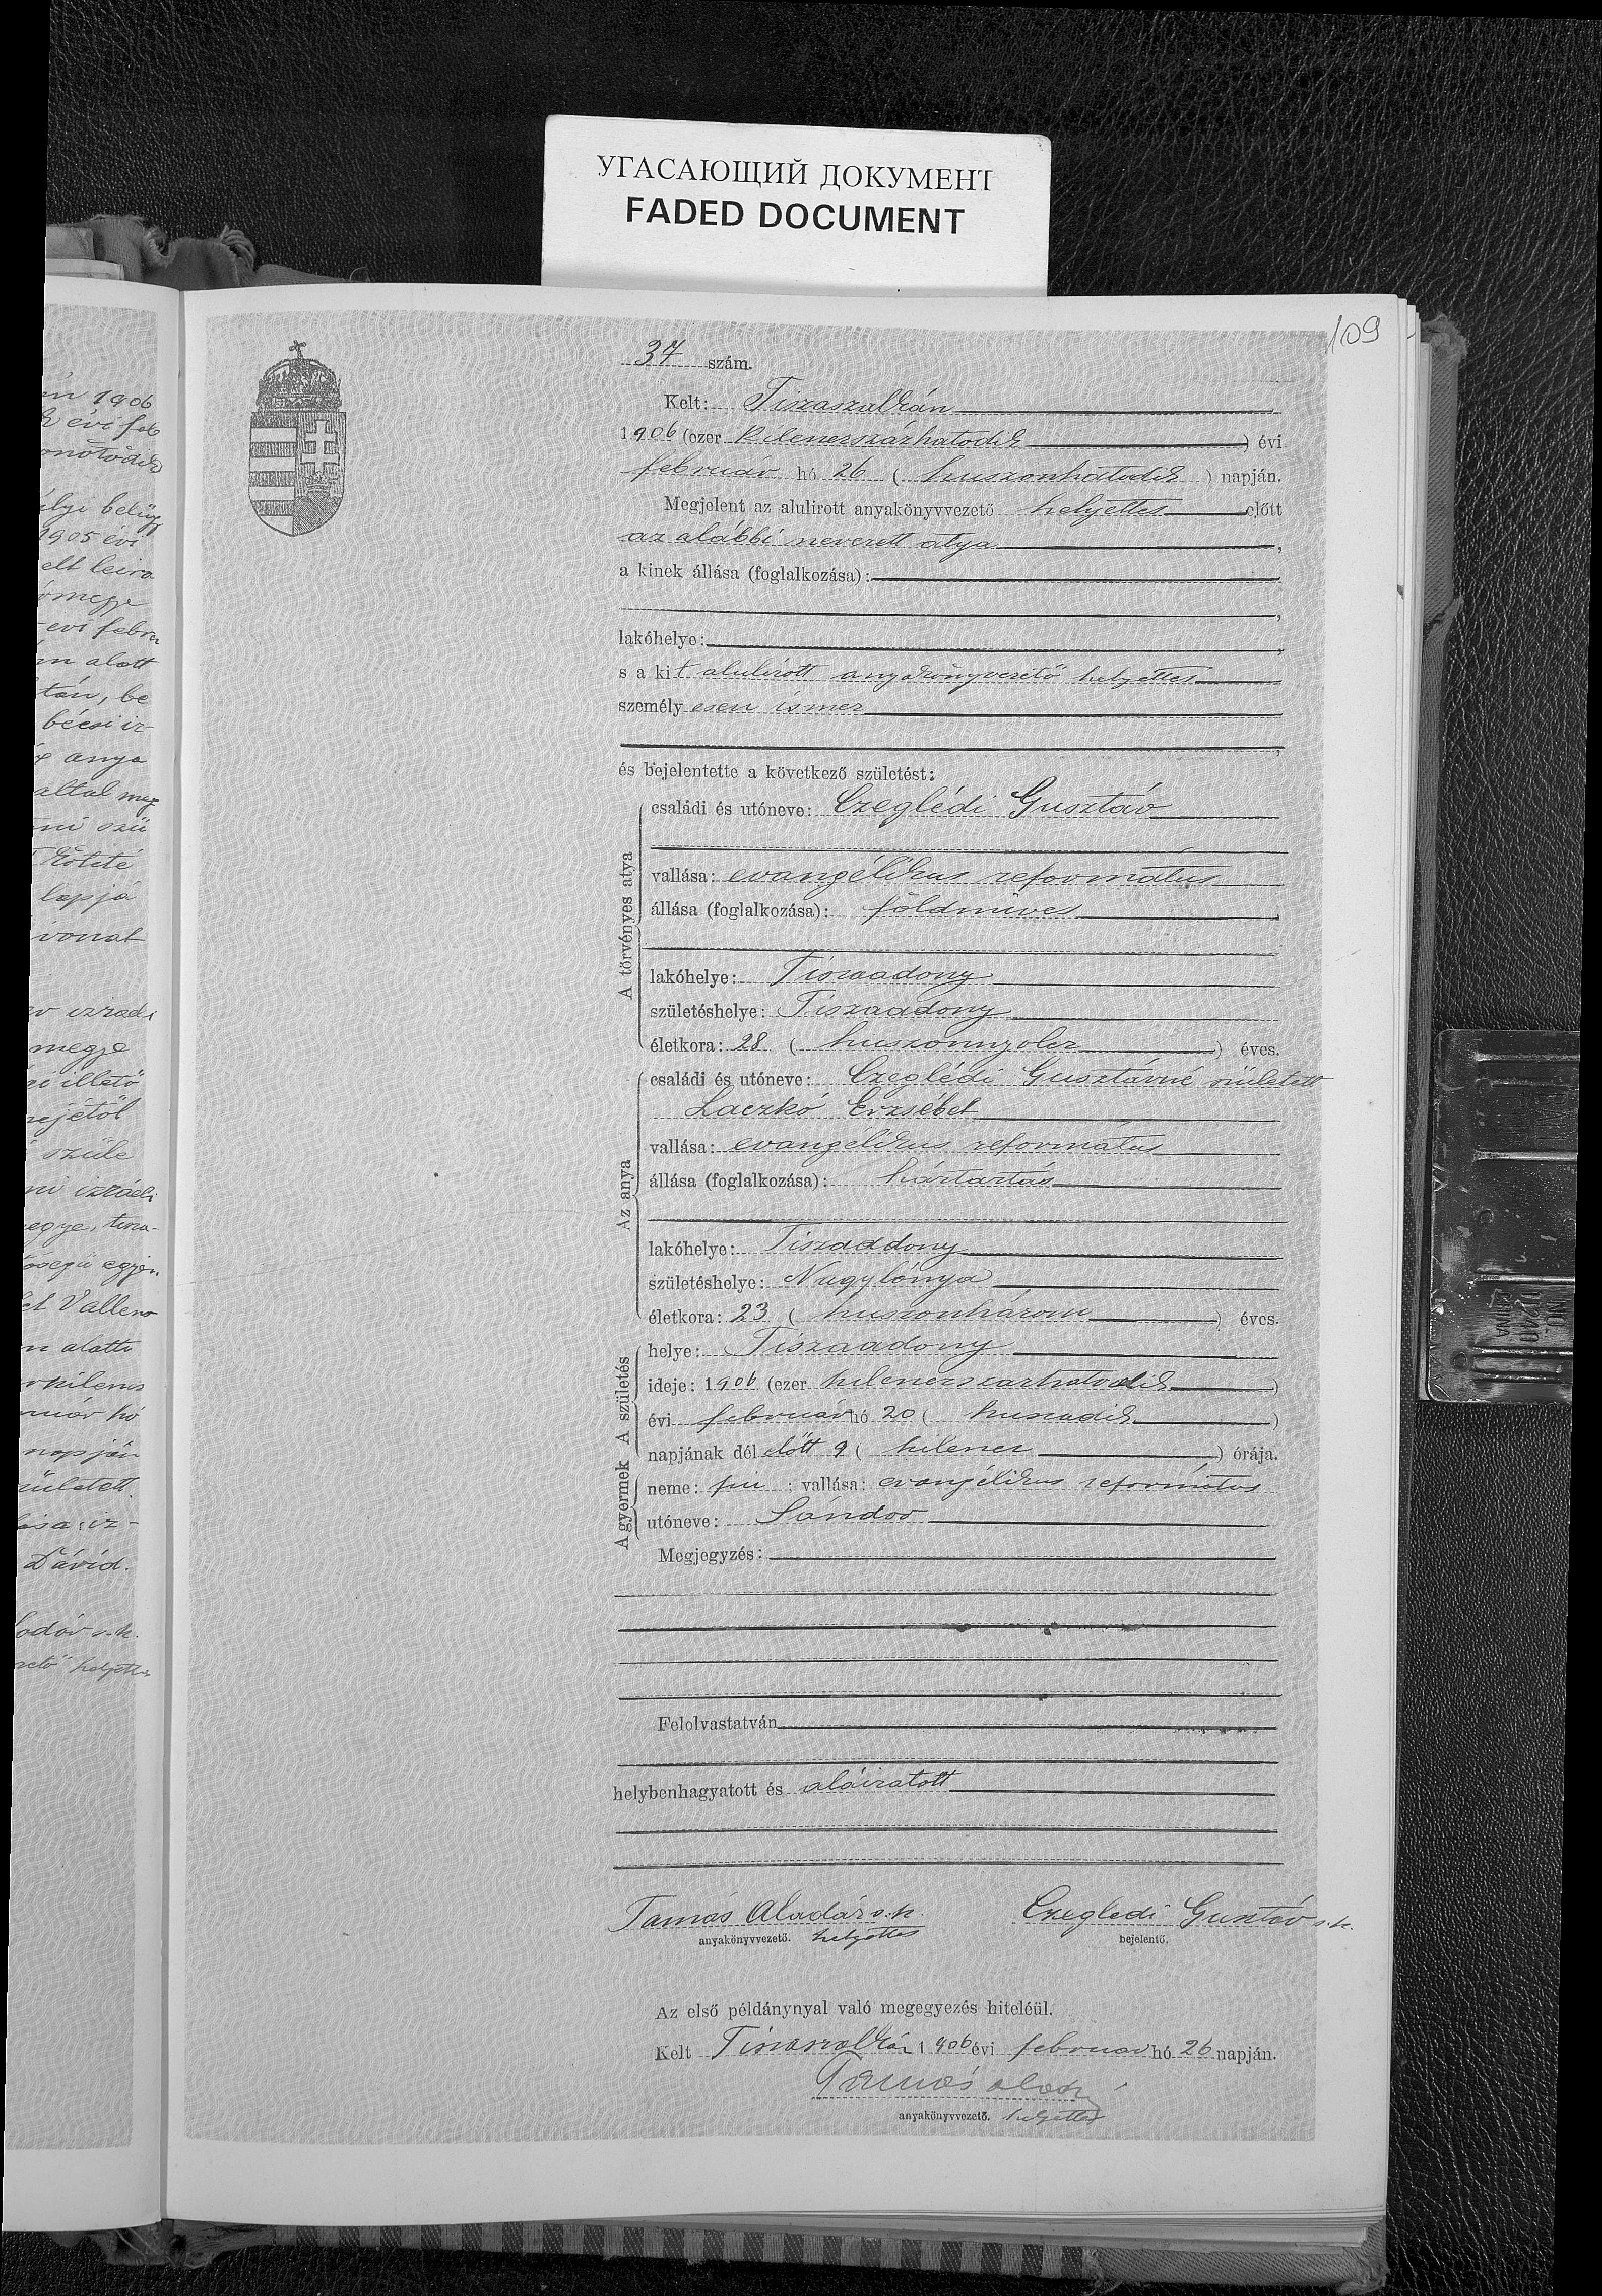 УГАСАЮЩИЙ ДОКУМЕНТ
FADED DOCUMENT
109
37 szám.
Kelt: Tiszaszalkán
1906 (ezer kilenczszázhatodik) évi
február hó 26 (huszonhatodik) napján.
Megjelent az alulirott anyakönyvvezető helyettes előtt
az alábbi nevezett atya,
a kinek állása (foglalkozása):
lakóhelye:
s a kit alulirott anyakönyvvezető helyettes
személyesen ismer
és bejelentette a következő születést:
A törvényes atya
családi és utóneve: Czeglédi Gusztáv
vallása: evangélikus református
állása (foglalkozása): földmüves
lakóhelye: Tiszaadony
születéshelye: Tiszaadony
életkora: 28 (huszonnyolcz) éves.
Az anya
családi és utóneve: Czeglédi Gusztávné született
Laczkó Erzsébet
vallása: evangélikus református
állása (foglalkozása): háztartás
lakóhelye: Tiszaadony
születéshelye: Nagylónya
életkora: 23 (huszonhárom) éves.
A születés
helye: Tiszaadony
ideje: 1906 (ezer kilenczszázhatodik)
évi február hó 20 (huszadik)
napjának dél előtt 9 (kilencz) órája.
A gyermek
neme: fiu; vallása: evangélikus református
utóneve: Sándor
Megjegyzés:
Felolvastatván
helybenhagyatott és aláiratott
Tamás Aladár s.k. Czegledi Gusztáv s.k.
anyakönyvvezető. helyettes bejelentő.
Az első példánynyal való megegyezés hiteléül.
Kelt Tiszaszalkán 1906 évi február hó 26 napján.
Tamás Aladár
anyakönyvvezető. helyettes
in 1906
k évi feb
onötödik
élyi belüg
1905 évi
elt leira
évi febru
án alatt
tán, be
bécsi iz-
anya
által meg
ni szü
lapjá
ivonat
megje
illető
nejétől
szüle
egye, tisza-
n alatti
kilencz
nuár hó
napján
született
Dávid.
s.k.
helyettes